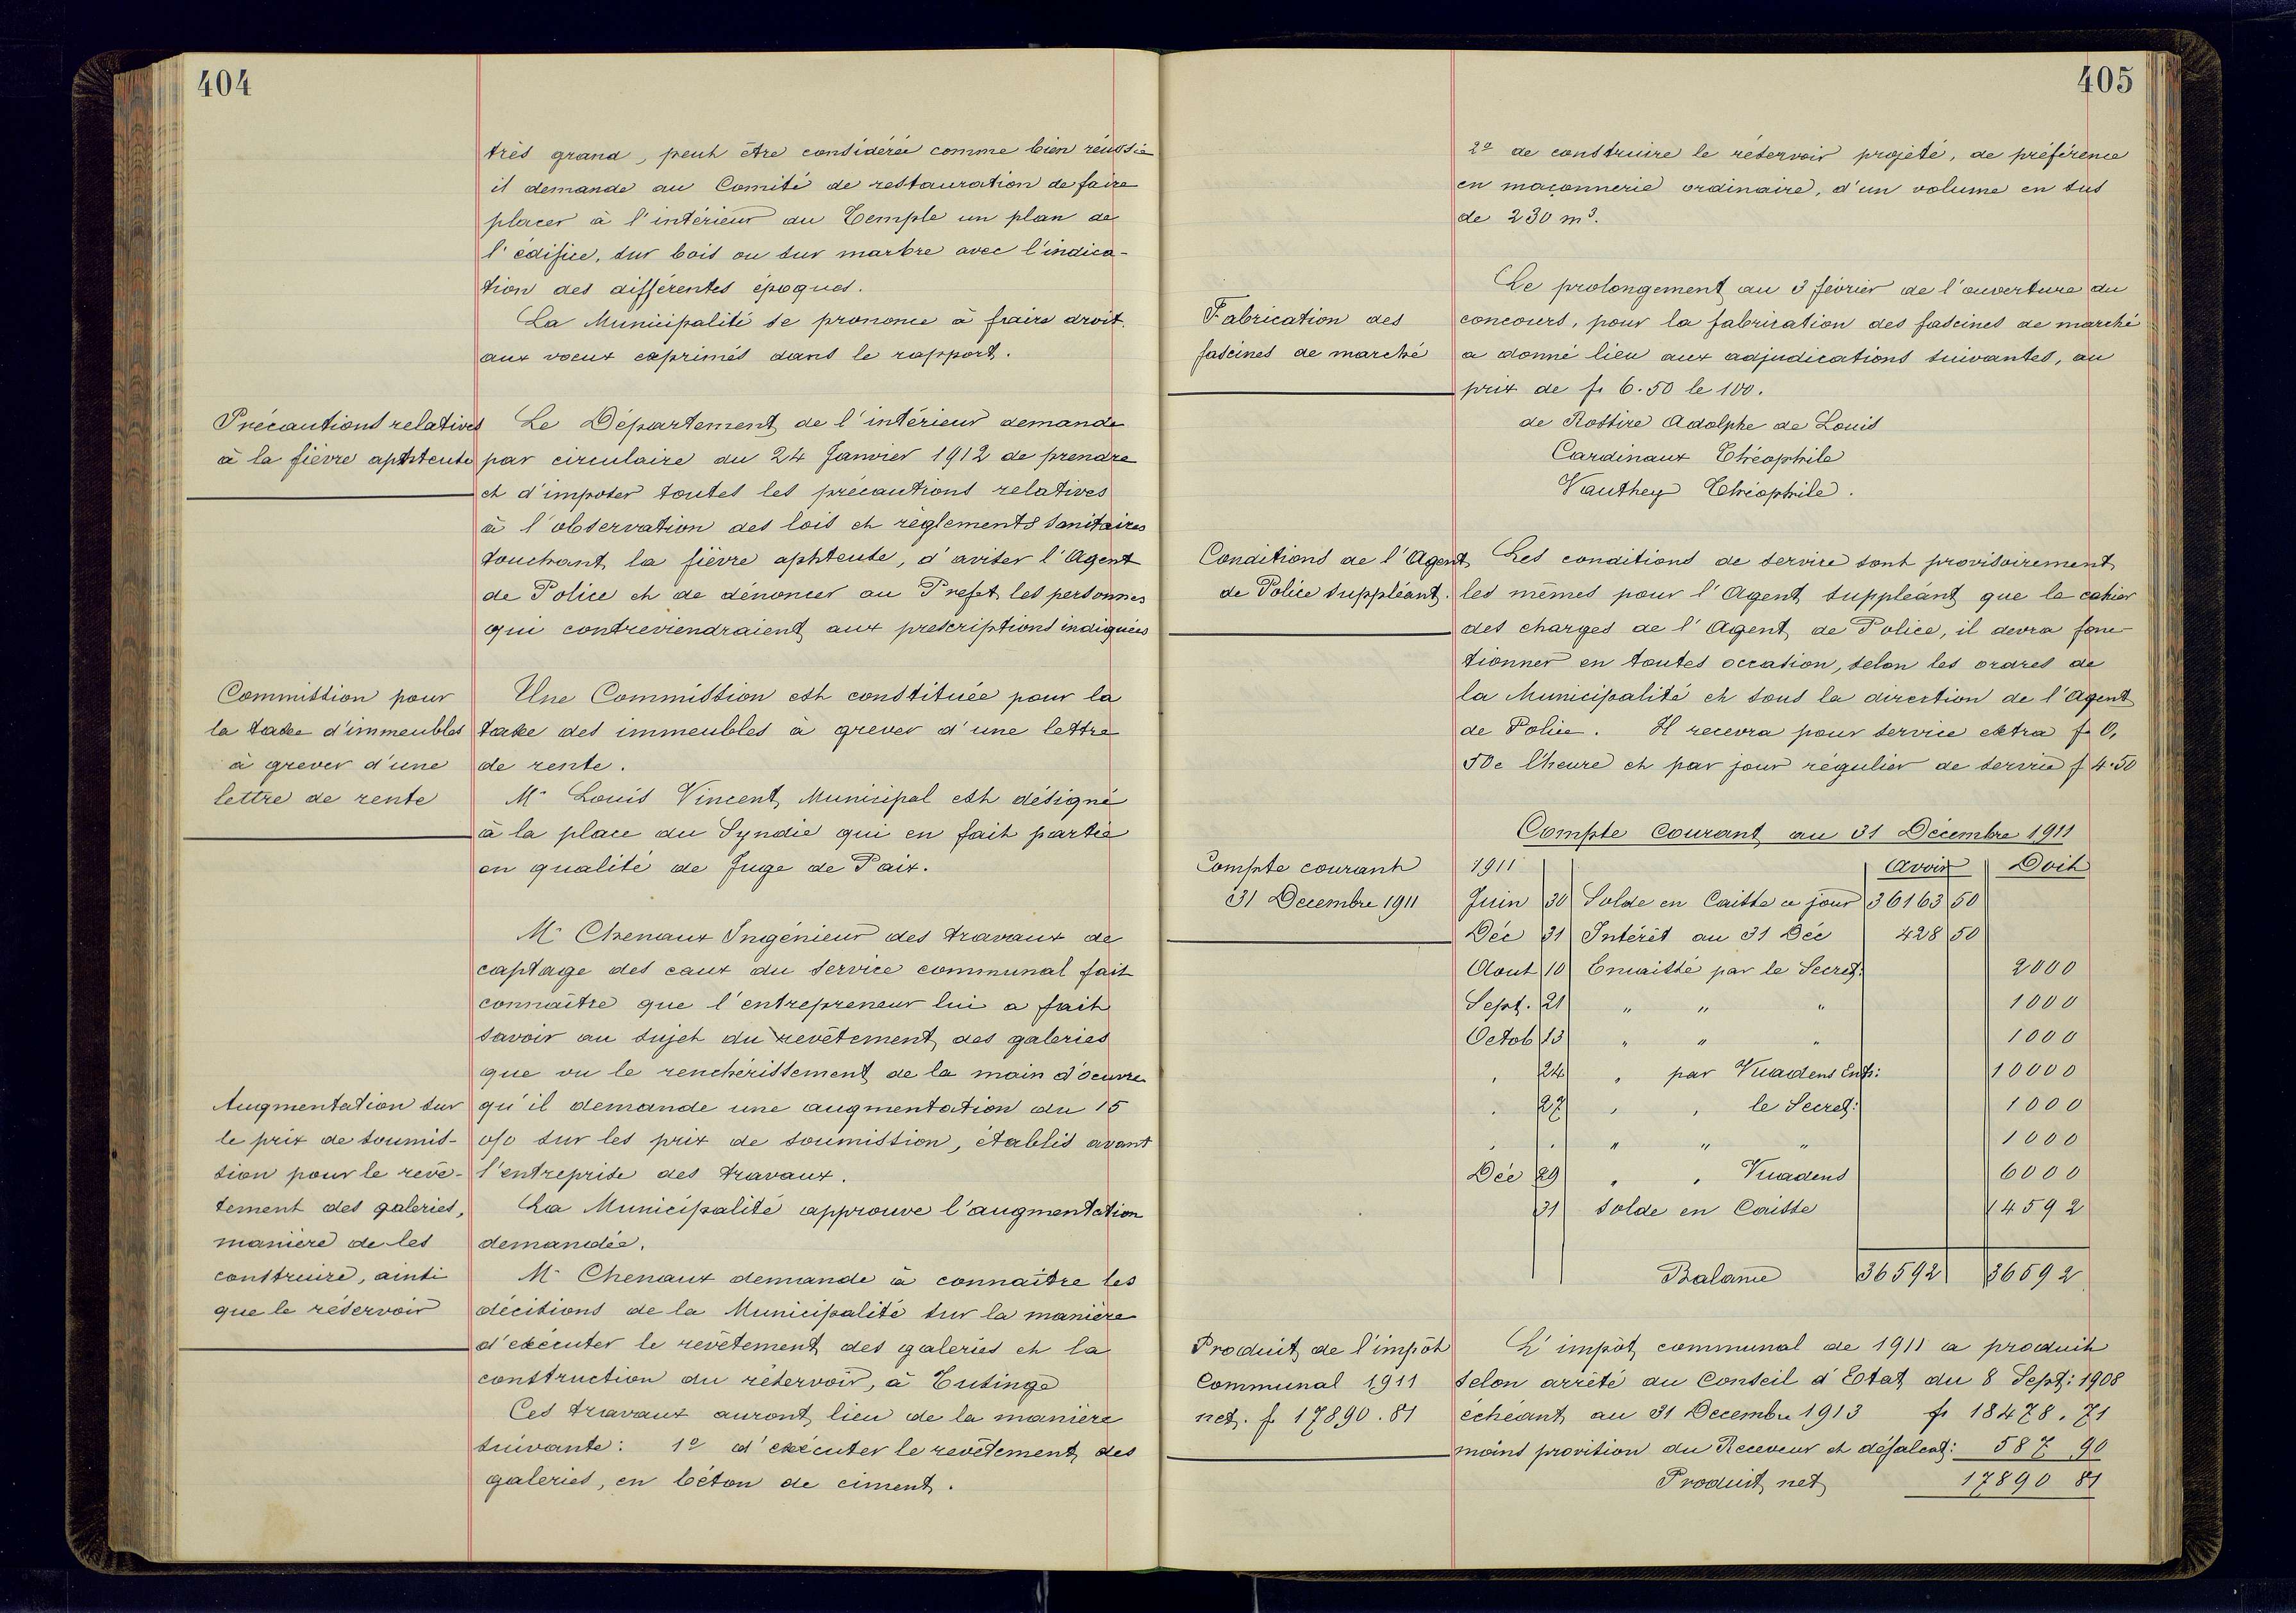 404
très grand, peut être considérée comme bien réussie
il demande au Comité de restauration de faire
placer à l'intérieur du Temple un plan de
l'édifice, sur bois ou sur marbre avec l'indica-
tion des différentes époques.
La Municipalité se prononce à faire droit
aux voeux exprimés dans le rapport.
Précautions relatives
à la fièvre aphteuse
Le Département de l'intérieur demande
par circulaire du 24 Janvier 1912 de prendre
et d'imposer toutes les précautions relatives
à l'observation des lois et règlements sanitaires
touchant la fièvre aphteuse, d'aviser l'Agent
de Police et de dénoncer au Préfet les personnes
qui contreviendraient aux prescriptions indiquées
Commission pour
la taxe d'immeubles
à grever d'une
lettre de rente
Une Commission est constituée pour la
taxe des immeubles à grever d'une lettre
de rente.
Mr Louis Vincent Municipal est désigné
à la place du Syndic qui en fait partie
en qualité de Juge de Paix.
Mr Chenaux Ingénieur des travaux de
captage des eaux du service communal fait
connaître que l'entrepreneur lui a fait
savoir au sujet du revêtement des galeries
que vu le renchérissement de la main d'oeuvre
Augmentation sur
le prix de soumis-
sion pour le revê-
tement des galeries,
manière de les
construire, ainsi
que le réservoir
qu'il demande une augmentation du 15
o/o sur les prix de soumission, établis avant
l'entreprise des travaux.
La Municipalité approuve l'augmentation
demandée.
Mr Chenaux demande à connaître les
décisions de la Municipalité sur la manière
d'exécuter le revêtement des galeries et la
construction du réservoir, à Tusinge
Ces travaux auront lieu de la manière
suivante: 1º d'exécuter le revêtement des
galeries, en béton de ciment.
405
2º de construire le réservoir projeté, de préférence
en maçonnerie ordinaire, d'un volume en sus
de 230 m3.
Fabrication des
fascines de marché
Le prolongement au 3 février de l'ouverture du
concours, pour la fabrication des fascines de marché
a donné lieu aux adjudications suivantes, au
prix de fr 6.50 le 100.
de Rossire Adolphe de Louis
Cardinaux Théophile
Vauthey Théophile.
Conditions de l'Agent
de Police suppléant.
Les conditions de service sont provisoirement
les mêmes pour l'Agent suppléant que le cahier
des charges de l'Agent de Police, il devra fonc-
tionner en toutes occasion, selon les ordres de
la Municipalité et sous la direction de l'Agent
de Police. Il recevra pour service extra f 0,
50c l'heure et par jour régulier de service f 4.50
Compte courant
31 Decembre 1911
Compte Courant au 31 Décembre 1911
1911 Avoir Doit
Juin 30 Solde en Caisse ce jour 36163 50
Déc 31 Intérêt au 31 Déc 428 50
Aout 10 Encaissé par le Secret: 2000
Sept. 21 " " " 1000
Octob 13 " " " 1000
" 24 " par Vuadens Entr: 10000
" 27 " " le Secret: 1000
" " " " " 1000
Déc 29 " " Vuadens 6000
31 Solde en Caisse 14592
Balance 36592 36592
Produit de l'impôt
Communal 1911
net. f 17890.81
L'impôt communal de 1911 a produit
selon arrêté du Conseil d'Etat du 8 Sept: 1908
échéant au 31 Decembre 1913 fr 18478.71
moins provision du Receveur et défalcat: 587 90
Produit net 17890 81